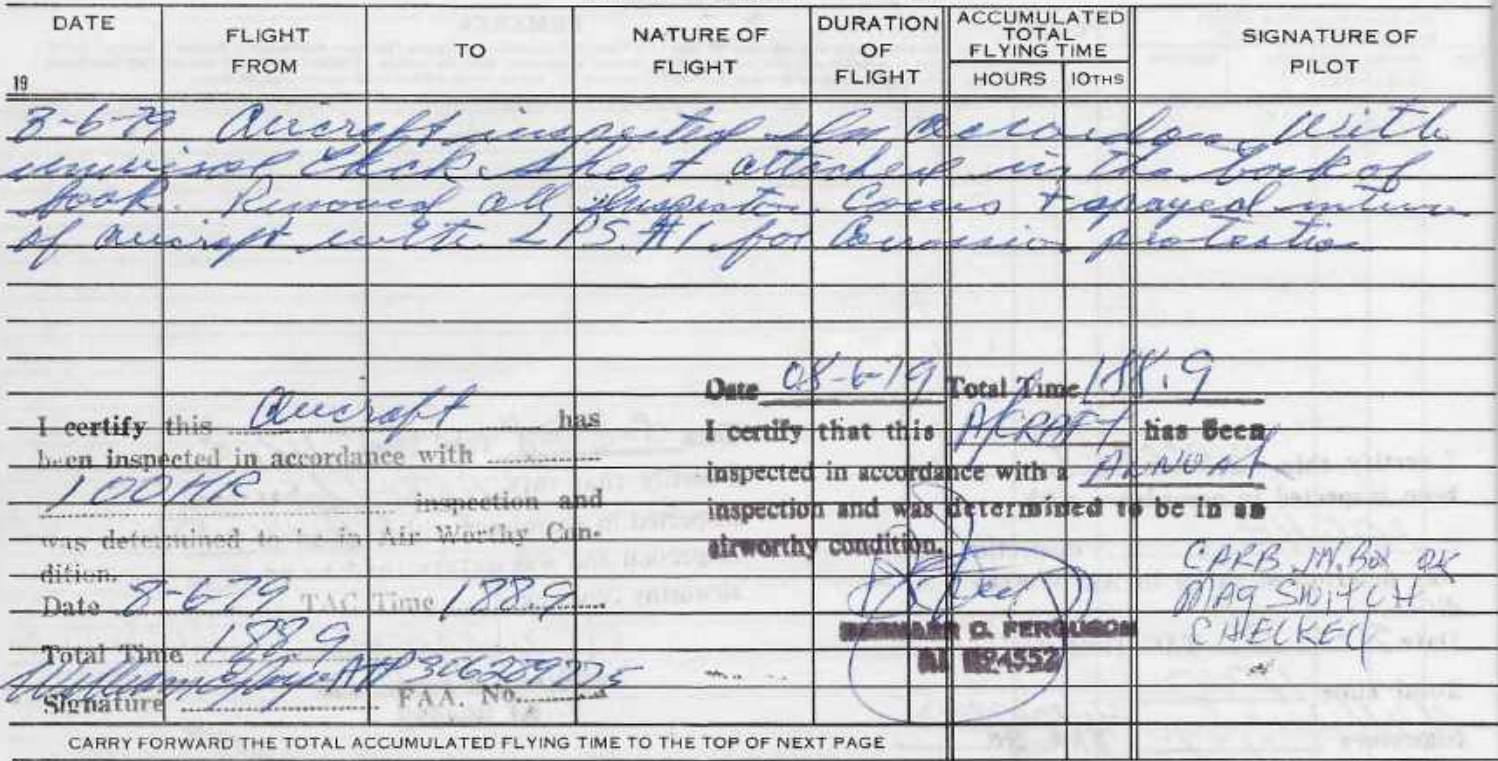 DATE FLIGHT FROM TO NATURE OF FLIGHT DURATION OF FLIGHT ACCUMULATED TOTAL FLYING TIME HOURS 10THS SIGNATURE OF PILOT
19
8-6-79 Aircraft inspected in accordance With
univisal Check sheet attached in the back of
book. Removed all Inspection Covers + spayed
of aircraft with LPS #1 for Corrosion protection
I certify this Aircraft has
been inspected in accordance with
100 HR inspection and
was determined to be in Air Worthy Con-
dition.
Date 8-6-79 TAC Time 188.9
Total Time 188.9
William A&P 306209725
Signature FAA. No.
Date 08-6-79 Total Time 188.9
I certify that this A/CRAFT has been
inspected in accordance with a ANNUAL
inspection and was determined to be in an
airworthy condition.
C. FERGUSON
CARB OK
MAG SWITCH
CHECKED
CARRY FORWARD THE TOTAL ACCUMULATED FLYING TIME TO THE TOP OF NEXT PAGE